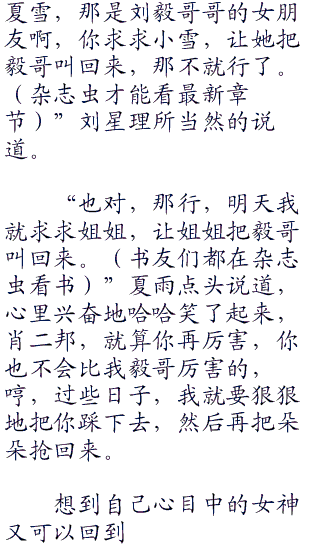 夏雪，那是刘毅哥哥的女朋
友啊，你求求小雪，让她把
毅哥叫回来，那不就行了。
（杂志虫才能看最新章
节）”刘星理所当然的说
道。
“也对，那行，明天我
就求求姐姐，让姐姐把毅哥
叫回来。（书友们都在杂志
虫看书）”夏雨点头说道，
心里兴奋地哈哈笑了起来，
肖二邦，就算你再厉害，你
也不会比我毅哥厉害的，
哼，过些日子，我就要狠狠
地把你踩下去，然后再把朵
朵抢回来。
想到自己心目中的女神
又可以回到